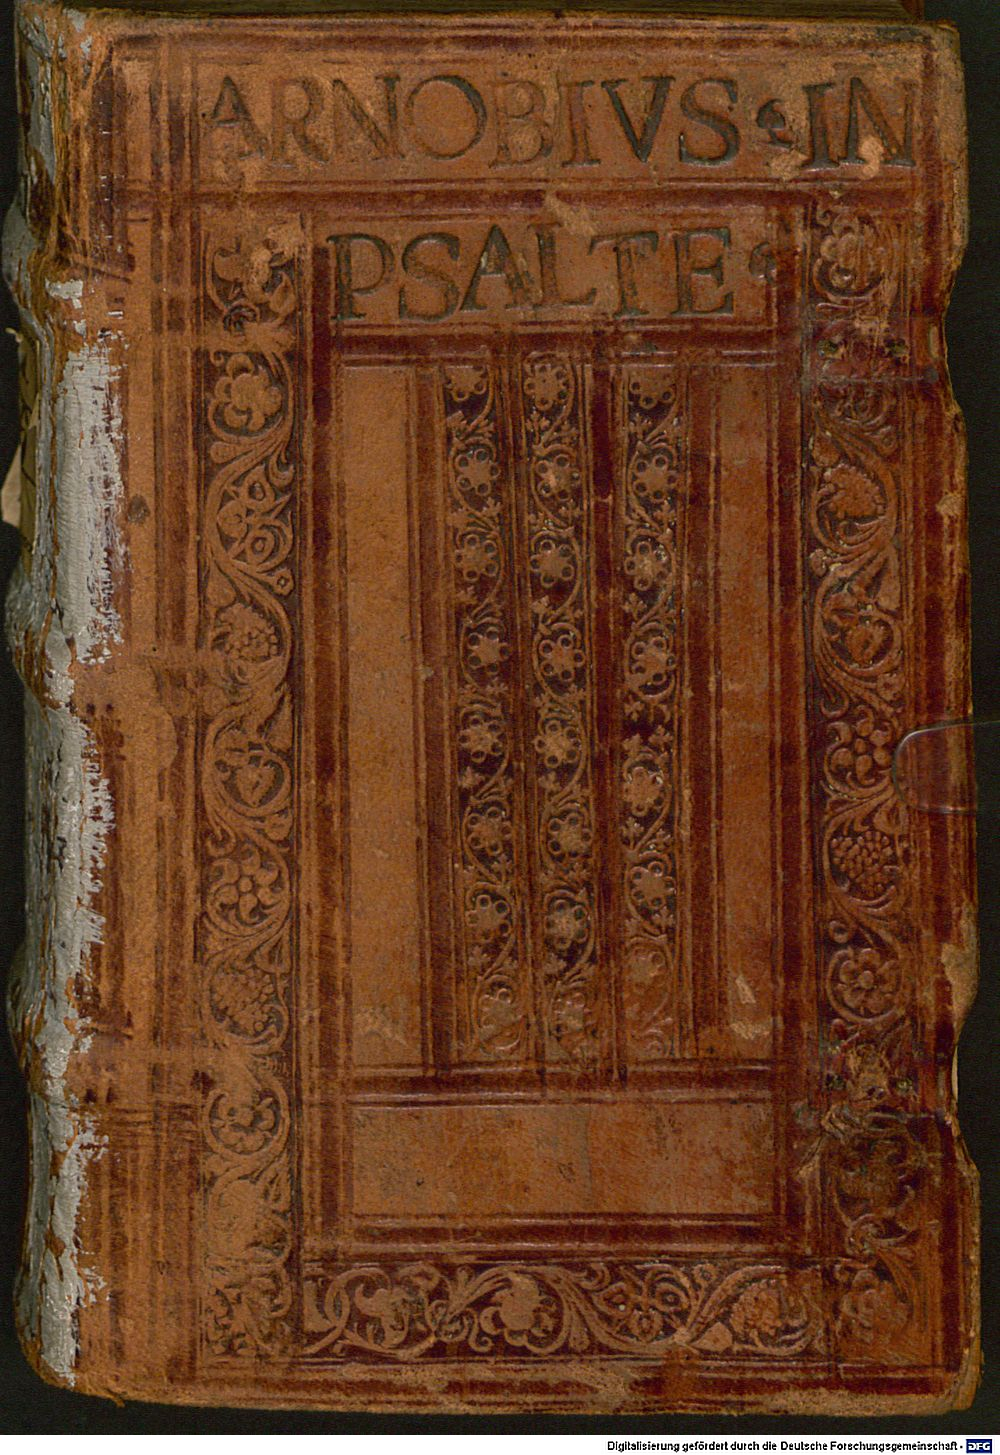 ARNOBIVS IN
PSALTE
Digitalisierung gefördert durch die Deutsche Forschungsgemeinschaft - DFG